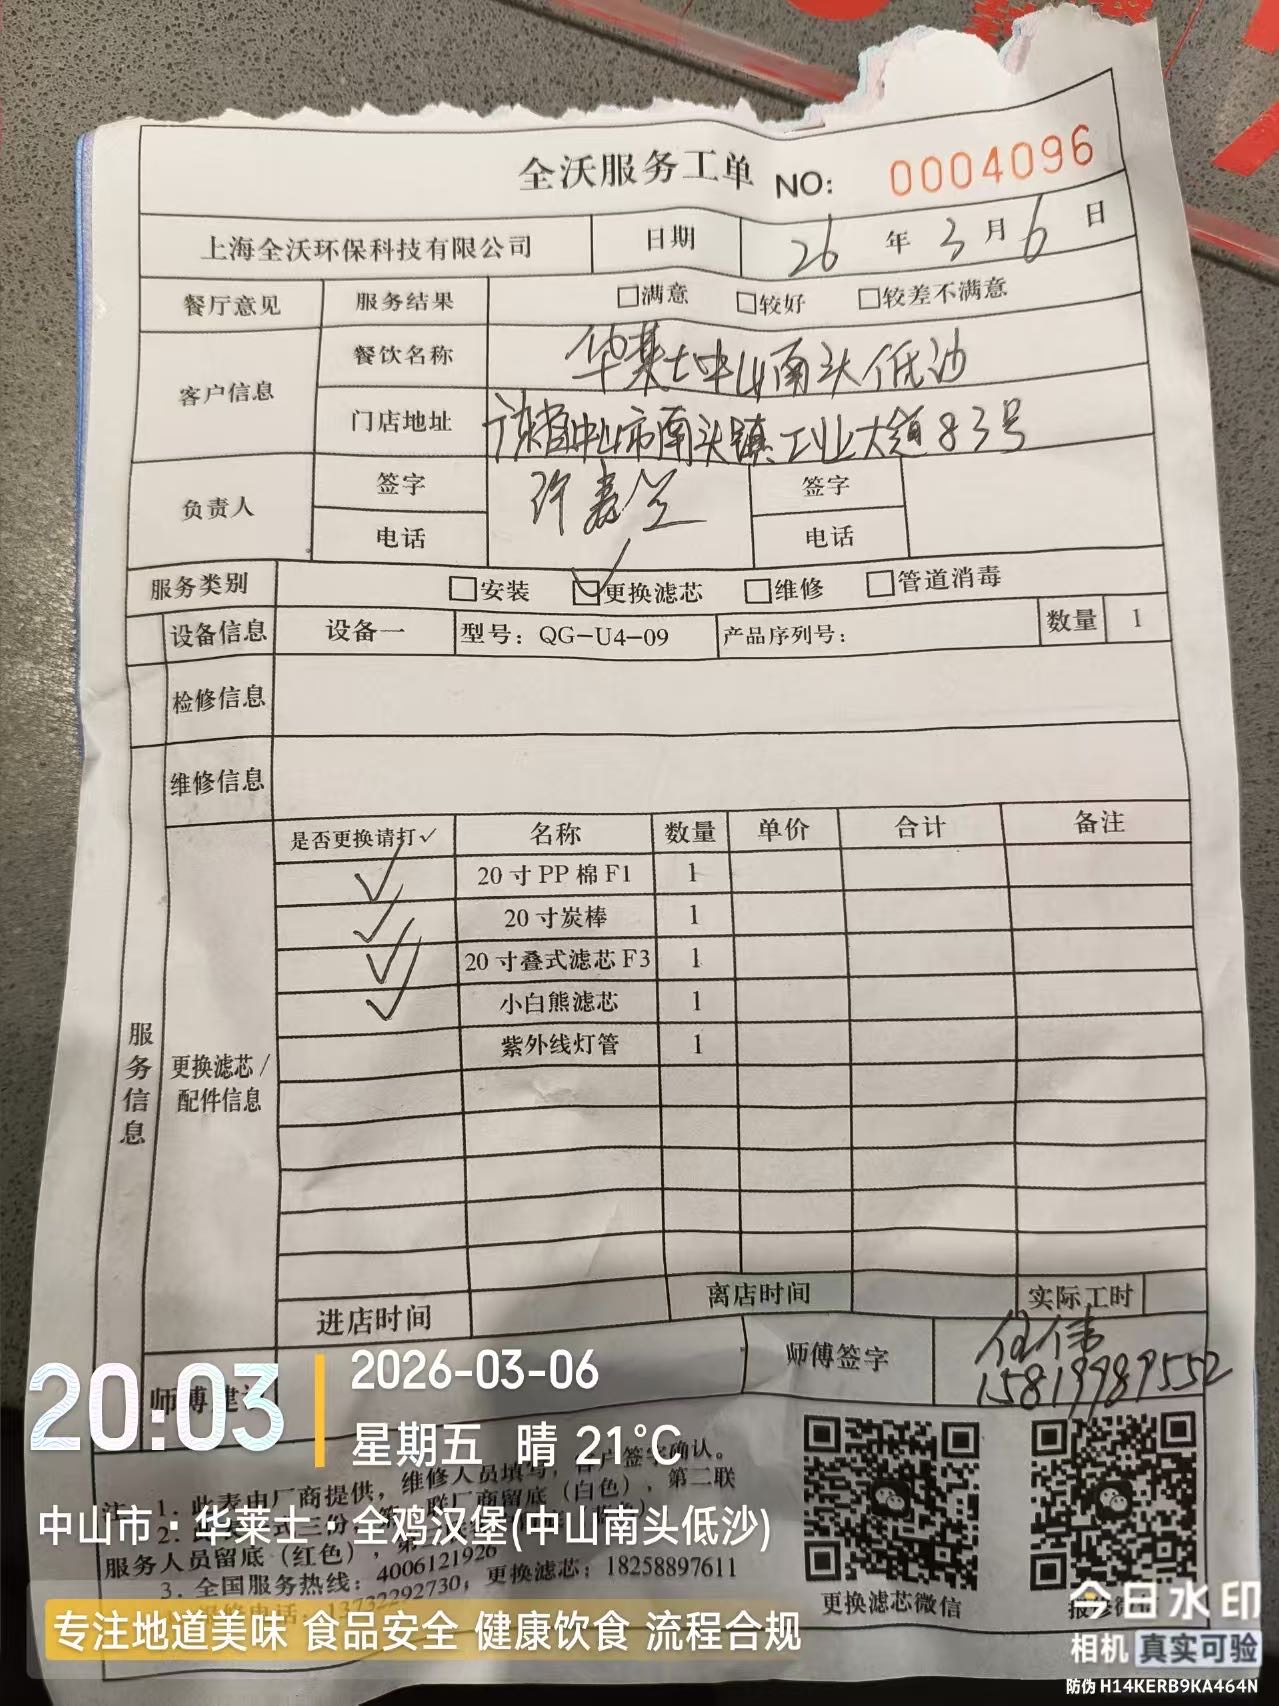 全沃服务工单 NO: 0004096
上海全沃环保科技有限公司 日期 26年3月6日
餐厅意见 服务结果 □满意 □较好 □较差不满意
客户信息 餐饮名称 华莱士中山南头低沙
门店地址 广东省中山市南头镇工业大道83号
负责人 签字 签字
电话 电话
服务类别 □安装 ☑更换滤芯 □维修 □管道消毒
设备信息 设备一 型号：QG-U4-09 产品序列号： 数量 1
检修信息
维修信息
服务信息
更换滤芯/配件信息
是否更换请打✓ 名称 数量 单价 合计 备注
✓ 20寸PP棉F1 1
✓ 20寸炭棒 1
✓ 20寸叠式滤芯F3 1
✓ 小白熊滤芯 1
紫外线灯管 1
进店时间 离店时间 实际工时
师傅签字
15819989552
20:03
2026-03-06
星期五 晴 21°C
1. 此表由厂商提供，维修人员填写，客户签字确认。
厂商留底（白色），第二联
中山市·华莱士·全鸡汉堡(中山南头低沙)
服务人员留底（红色），
3. 全国服务热线：4006121926
13732292730，更换滤芯：18258897611
更换滤芯微信
专注地道美味 食品安全 健康饮食 流程合规
今日水印
相机 真实可验
防伪 H14KERB9KA464N